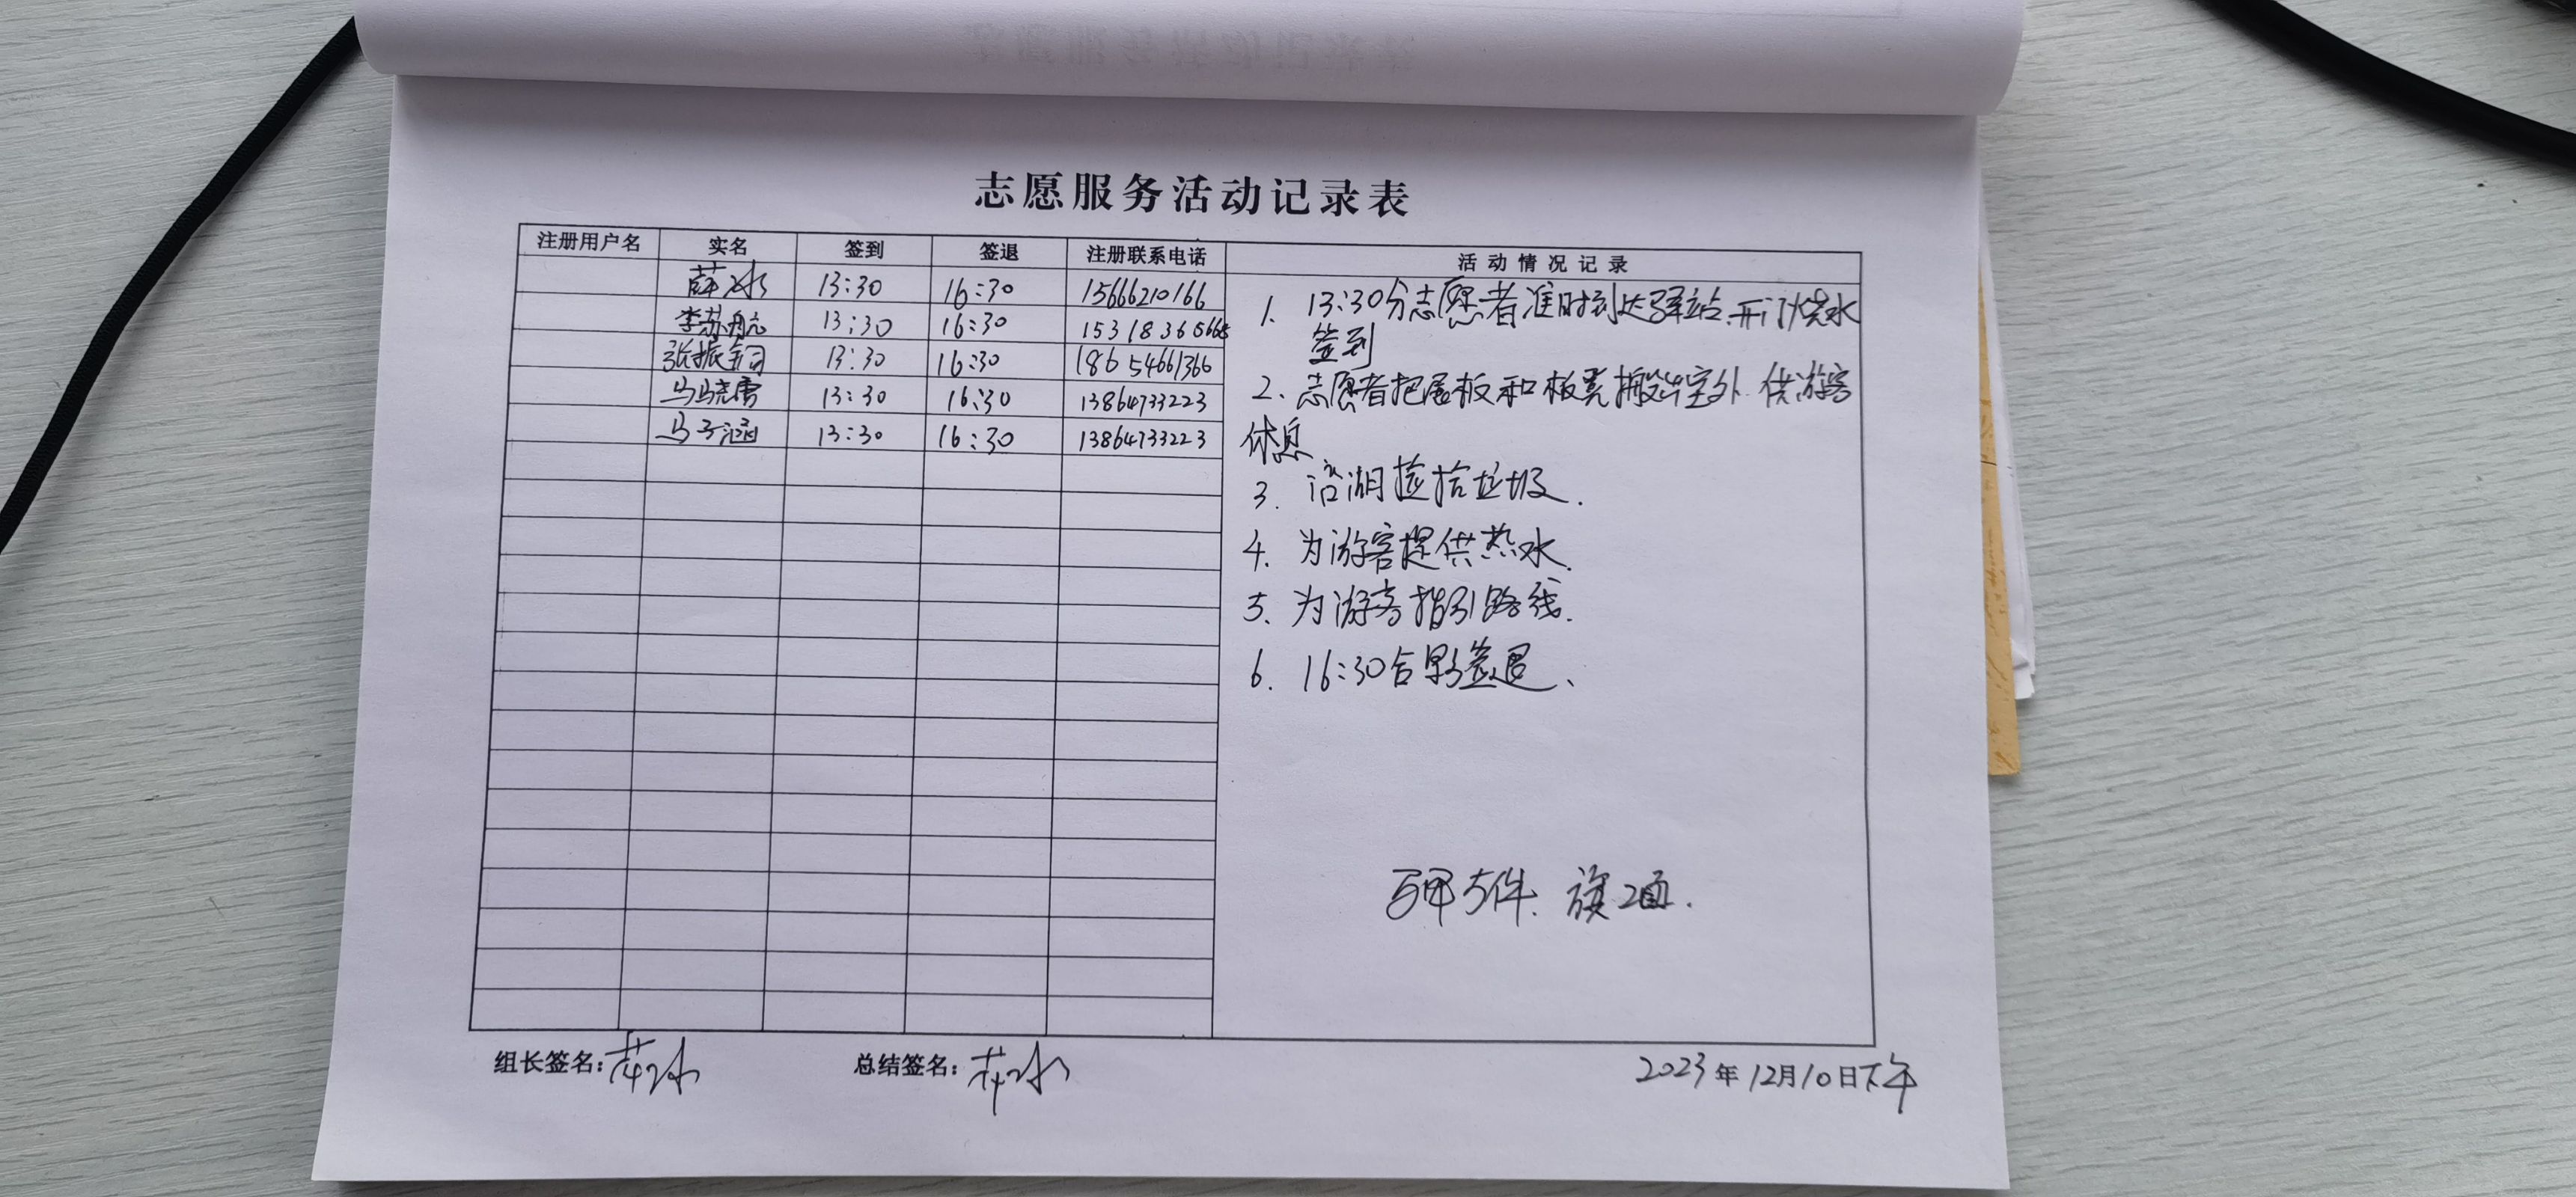 志愿服务活动记录表
注册用户名 实名 签到 签退 注册联系电话 活动情况记录
薛冰 13:30 16:30 15666210166
李苏航 13:30 16:30
张振钢 13:30 16:30 18654661366
马晓雪 13:30 16:30 13864733223
马子涵 13:30 16:30 13864733223
1. 13:30分志愿者准时到达驿站.开门烧水
签到
2、志愿者把展板和板凳搬出室外.供游客
休息
3. 沿湖捡拾垃圾.
4. 为游客提供热水.
5、为游客指引路线.
6. 16:30合影签退、
马甲5件、旗2面.
组长签名:薛冰 总结签名:薛冰 2023年12月10日下午